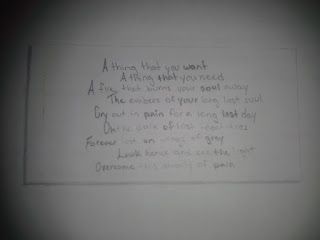 A thing that you want
A thing that you need
A fire that burns your soul away
The embers of your long lost soul
Cry out in pain for a long lost day
On the of lost
Forever lost on wings of grey
Look hence and see the light
Overcome this of pain